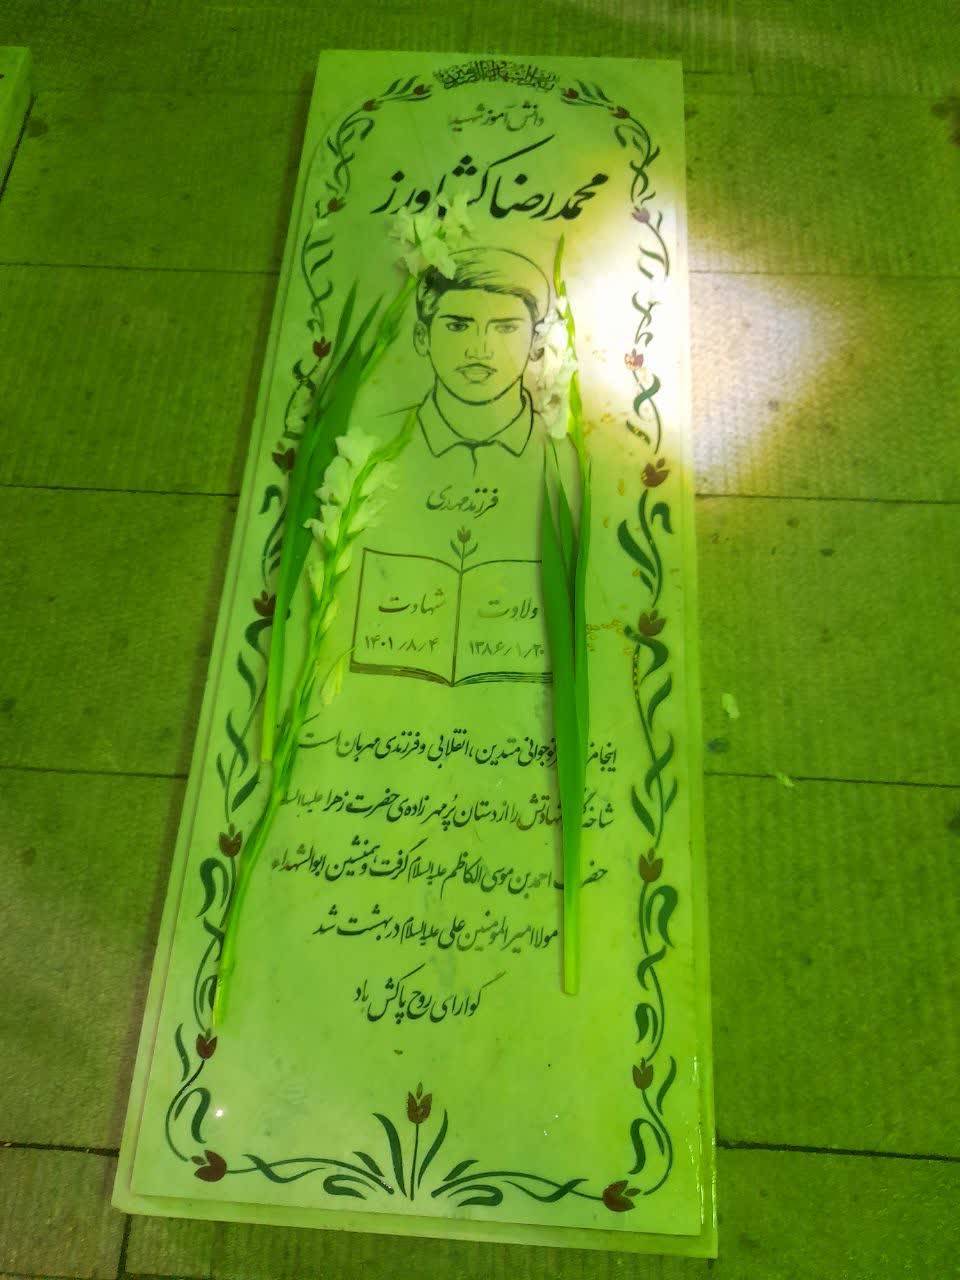 دانش آموز شهید
محمدرضا کشاورز
فرزند مهدی
ولادت
۱۳۸۶/۱/۲۰
شهادت
۱۴۰۱/۸/۴
نوجوانی متدین، انقلابی و فرزندی مهربان است
شهادتش را از دستان پُر مهر زاده‌ی حضرت زهرا علیهاالسلام
حضرت احمد بن موسی الکاظم علیه‌السلام گرفت و همنشین ابوالشهداء
مولا امیرالمومنین علی علیه‌السلام در بهشت شد
گوارای روح پاکش باد